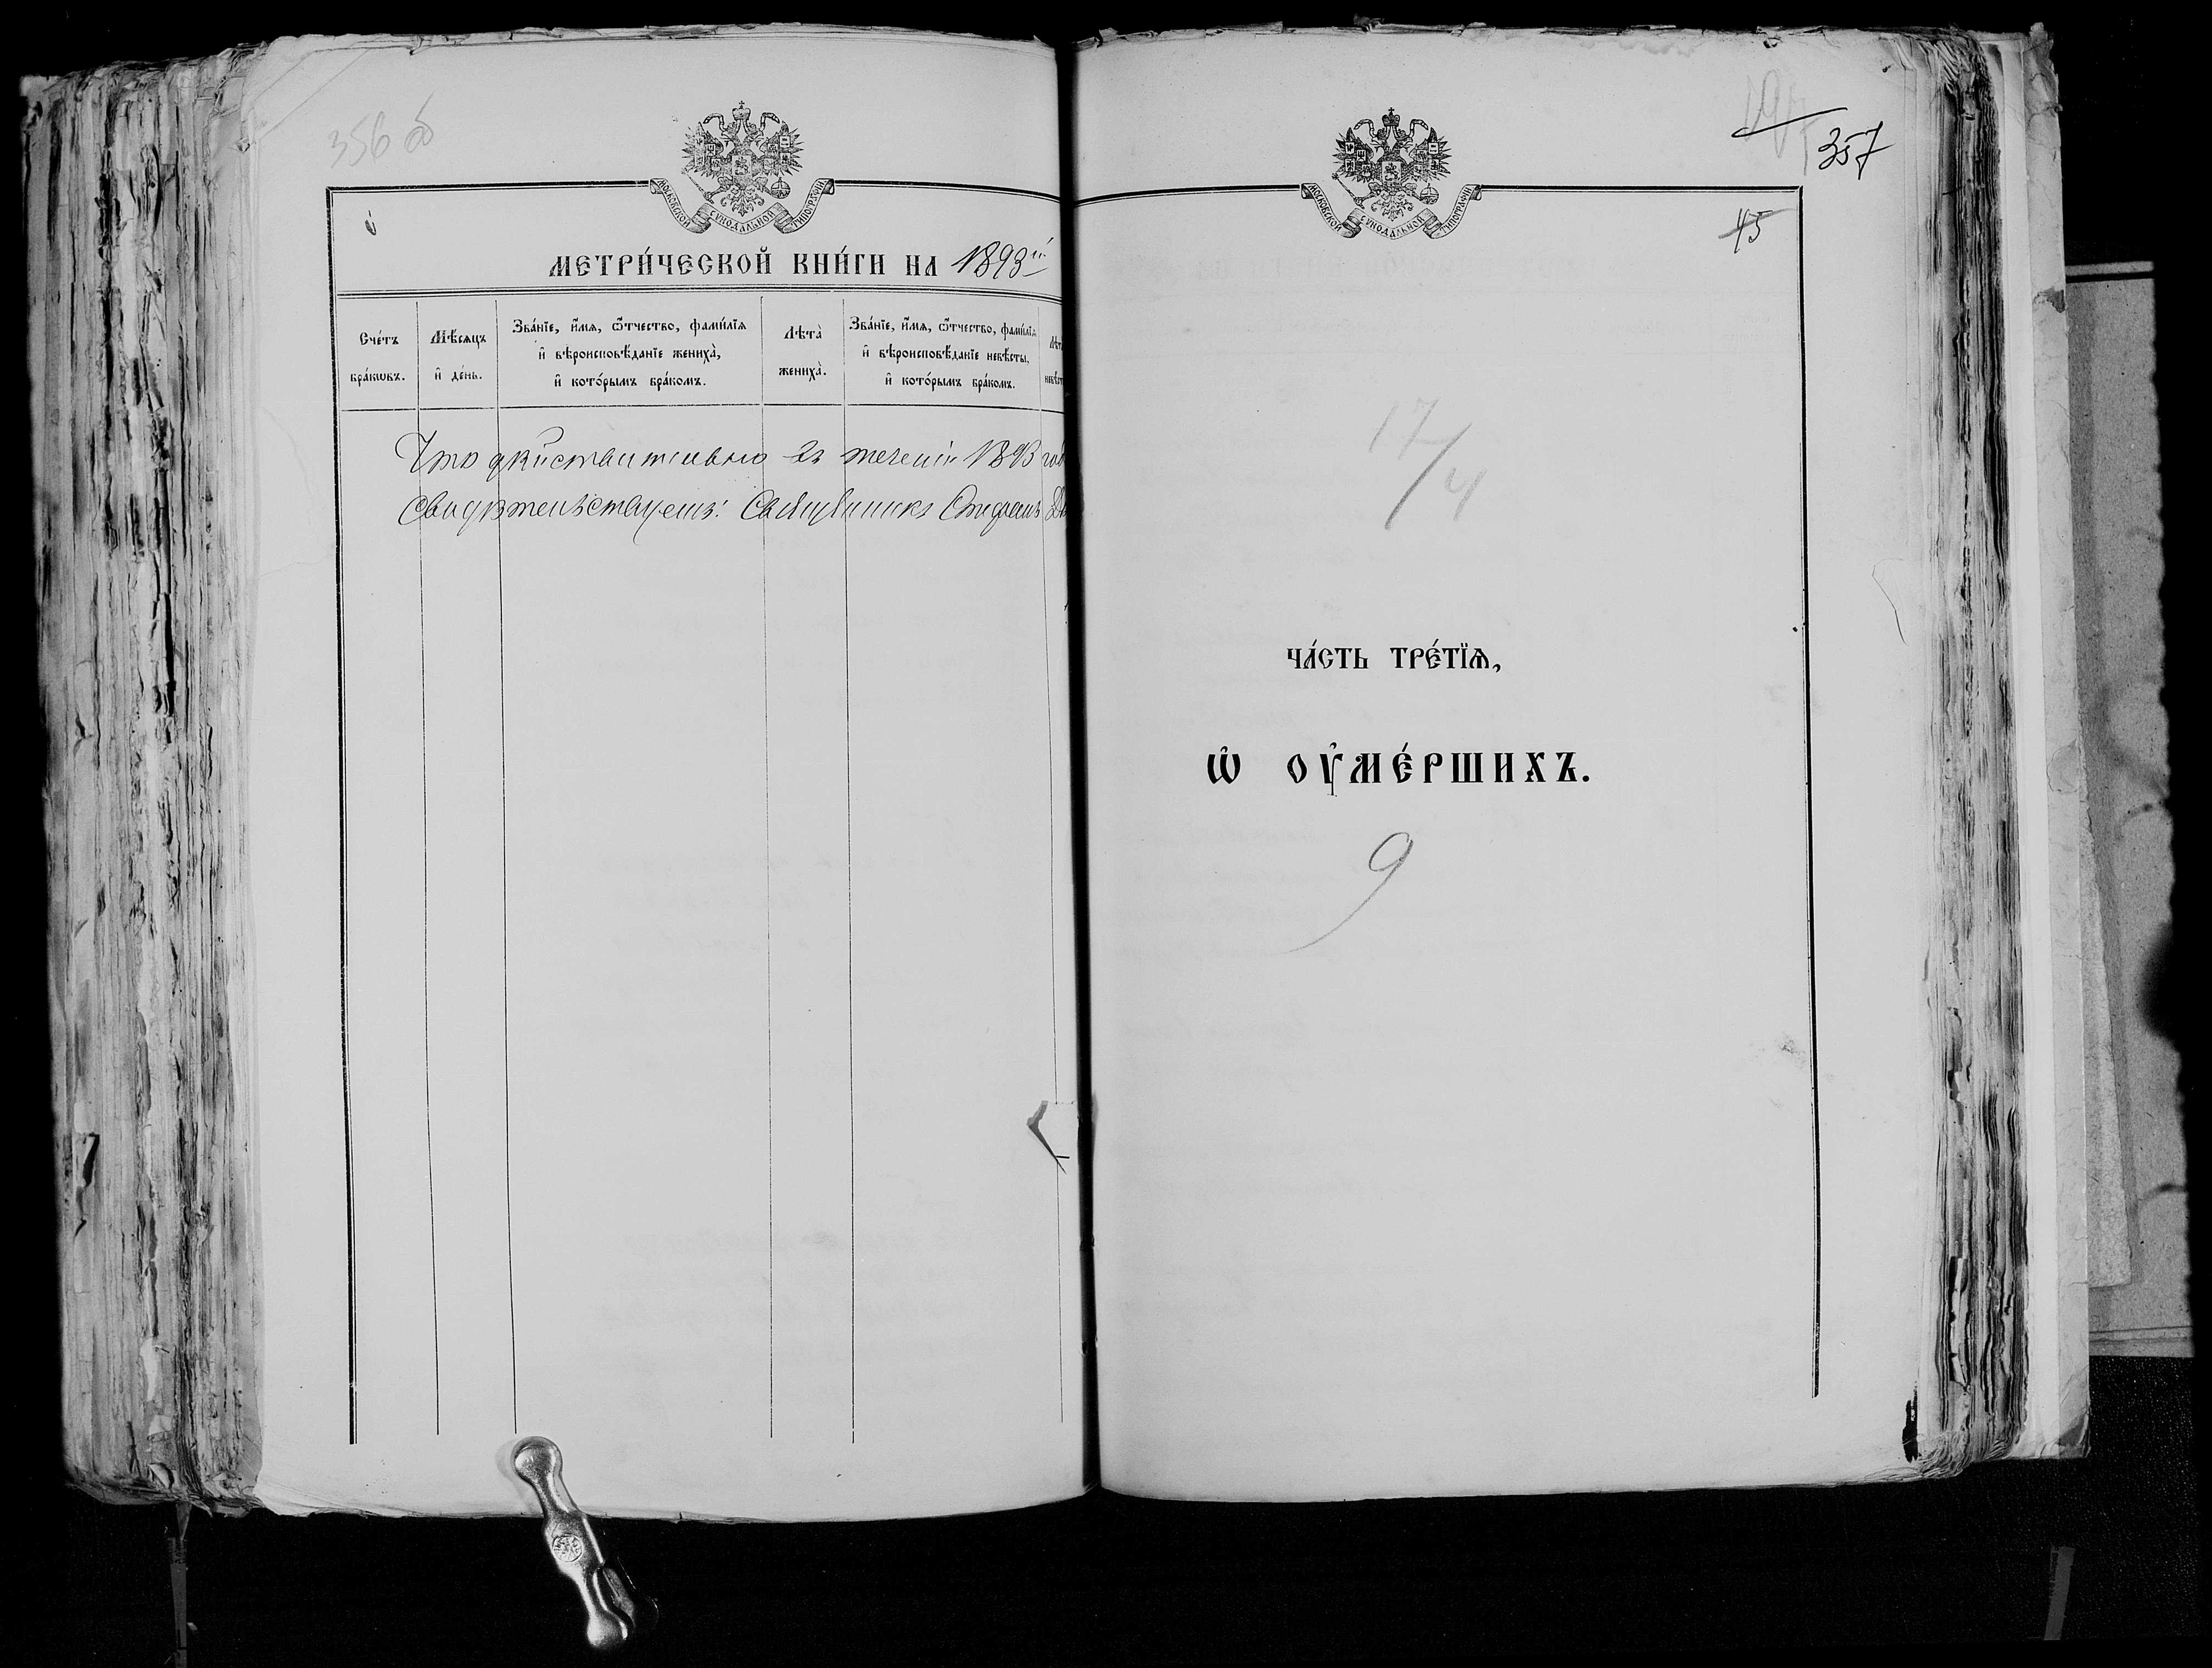 356 об
МОСКОВСКОЙ СѴНОДАЛЬНОЙ ТИПОГРАФІИ
МЕТРИ́ЧЕСКОЙ КНИ́ГИ НА 1893й
Сче́тъ бра́кѡвъ.
Мѣ́сяцъ и҆ де́нь.
Зва́нїе, и҆́мѧ, ѻ҆́тчество, фами́лїѧ
и҆ вѣроисповѣ́данїе жениха̀,
и҆ кото́рымъ бра́комъ.
Лѣта̀ жениха̀.
Зва́нїе, и҆́мѧ, ѻ҆́тчество, фами́лїѧ
и҆ вѣроисповѣ́данїе невѣ́сты,
и҆ кото́рымъ бра́комъ.
Что дѣйствительно въ теченіи 1893 год
Свидѣтельствуетъ: Священникъ Стефанъ
357
МОСКОВСКОЙ СѴНОДАЛЬНОЙ ТИПОГРАФІИ
45
17/4
ЧА́СТЬ ТРЕ́ТЇѦ,
Ѡ҆ ОУ҆МЕ́РШИХЪ.
9